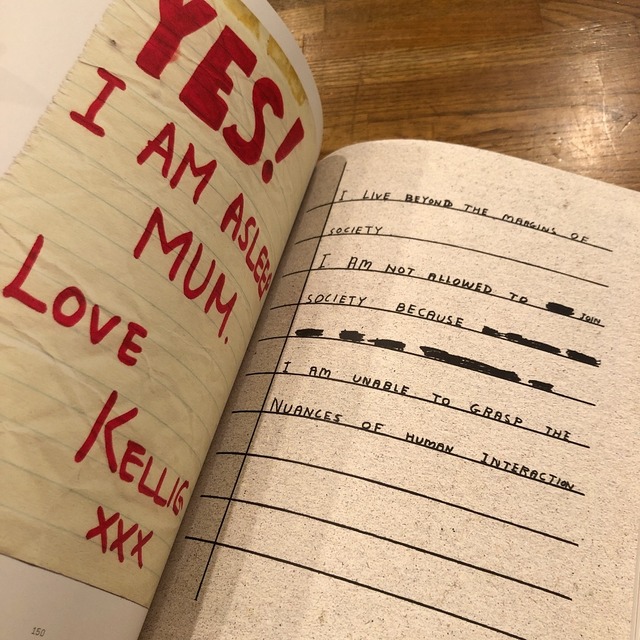 YES!
I AM ASLEEP
MUM.
LOVE
KELLIE
XXX
150
I LIVE BEYOND THE MARGINS OF
SOCIETY
I AM NOT ALLOWED TO JOIN
SOCIETY BECAUSE
I AM UNABLE TO GRASP THE
NUANCES OF HUMAN INTERACTION